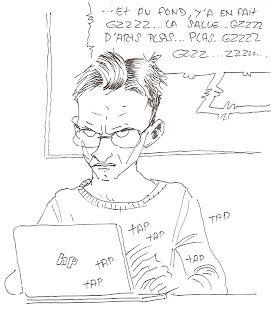 ...ET AU FOND, Y'A EN FAIT
GZZZZ...LA SALLE...GZZZZ
D'ARTS PLAS...PLAS...GZZZZ
GZZZ...ZZZZZ...
TAP
TAP
TAP
TAP
TAP
hp
TAP